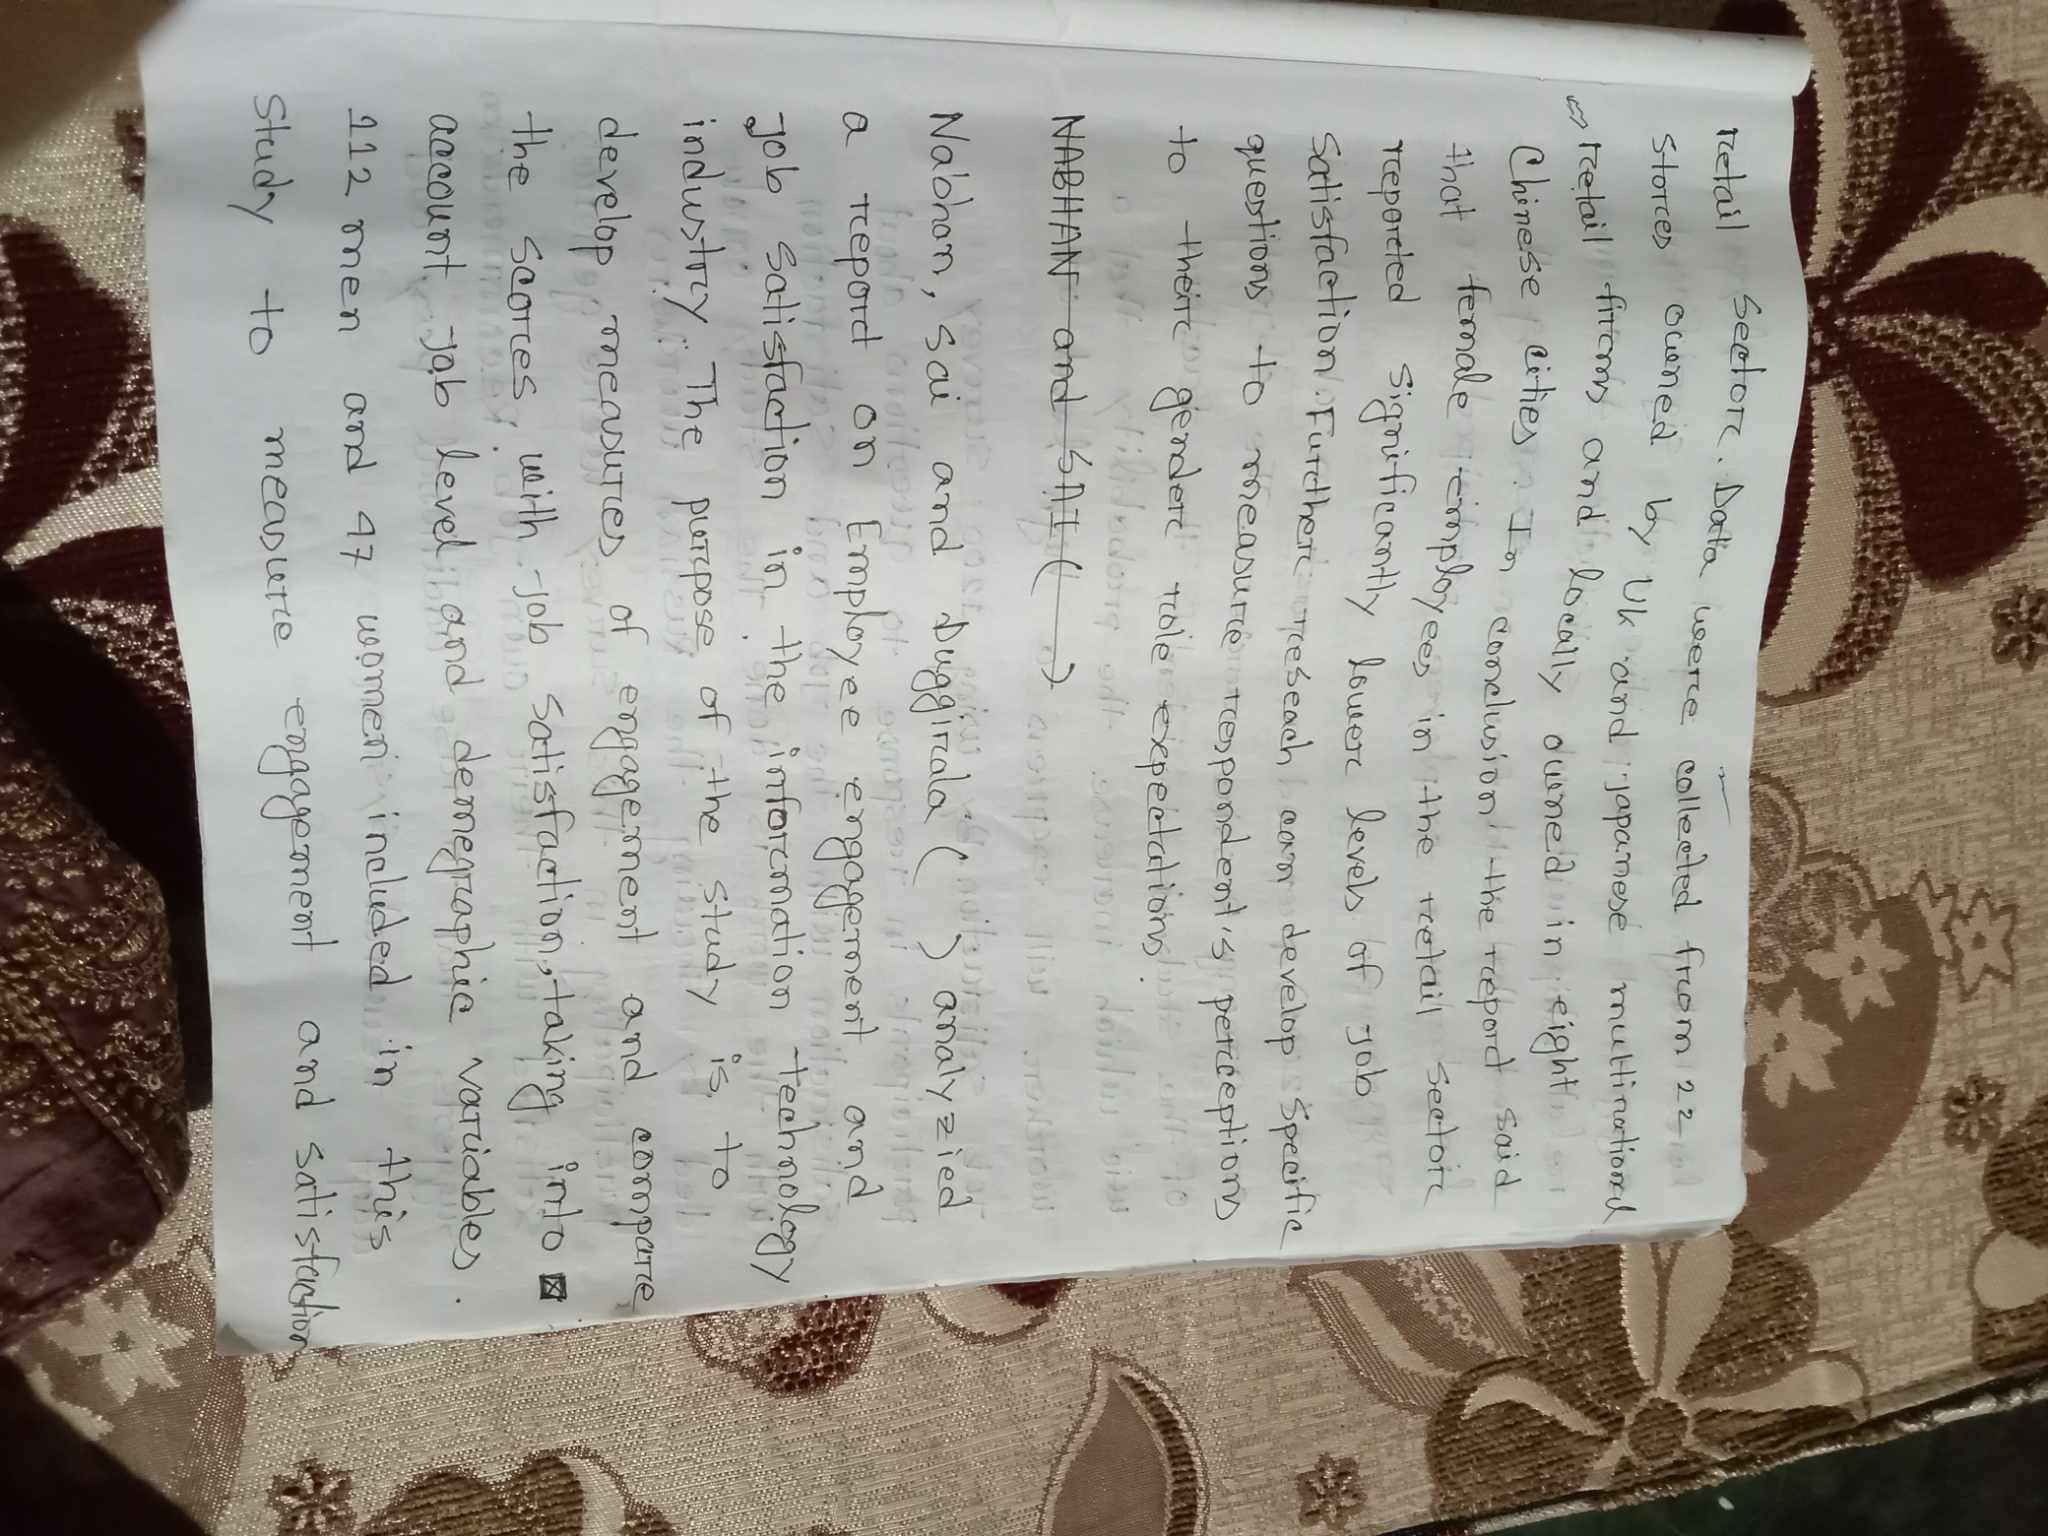 retail sector. Data were collected from 22
stores owned by UK and japanese multinational
retail firms and locally owned in eight
Chinese cities. In conclusion the report said
that female employees in the retail sector
reported significantly lower levels of job
satisfaction. Further reseach can develop specific
questions to measure respondent's perceptions
to their gender role expectations.
NABHAN and SAI ( )
Nabhan, sai and Duggirala ( ) analyzied
a report on Employee engagement and
job satisfaction in the information technology
industry. The purpose of the study is to
develop measures of engagement and compare
the scores with job satisfaction, taking into
account job level and demegraphic variables.
112 men and 47 women included in this
study to measure engagement and satisfaction